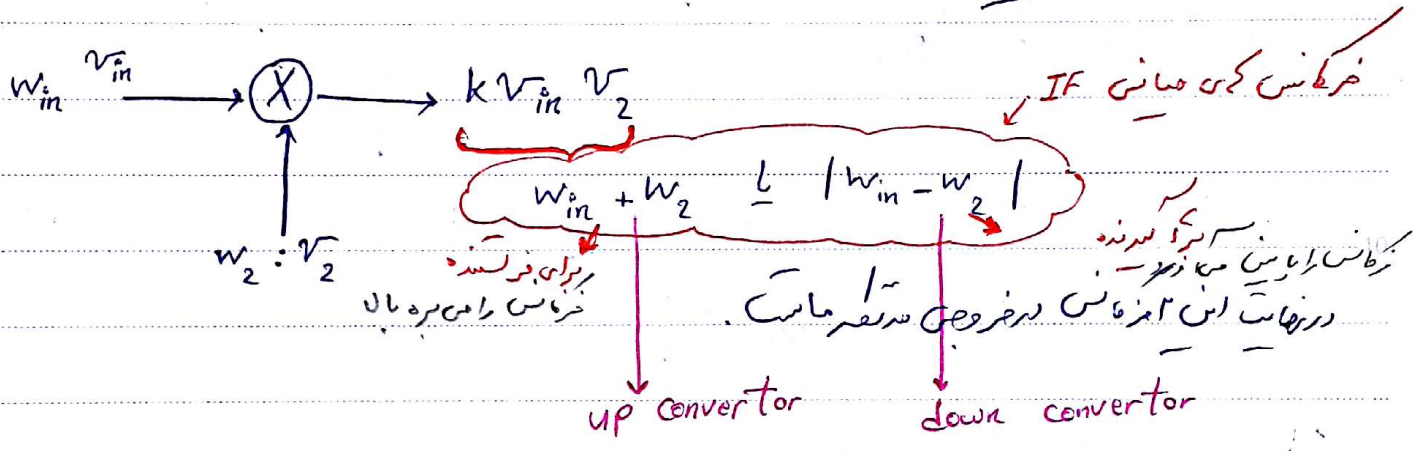 w_in v_in → X → k v_in v_2
فرکانس های میانی IF
w_in + w_2 یا |w_in - w_2|
w_2 : v_2
برای فرستنده
فرکانس را می بره بالا
برای گیرنده
فرکانس را پایین می آورد
در نهایت این فرکانس در خروجی مدنظر ماست.
up convertor
down convertor